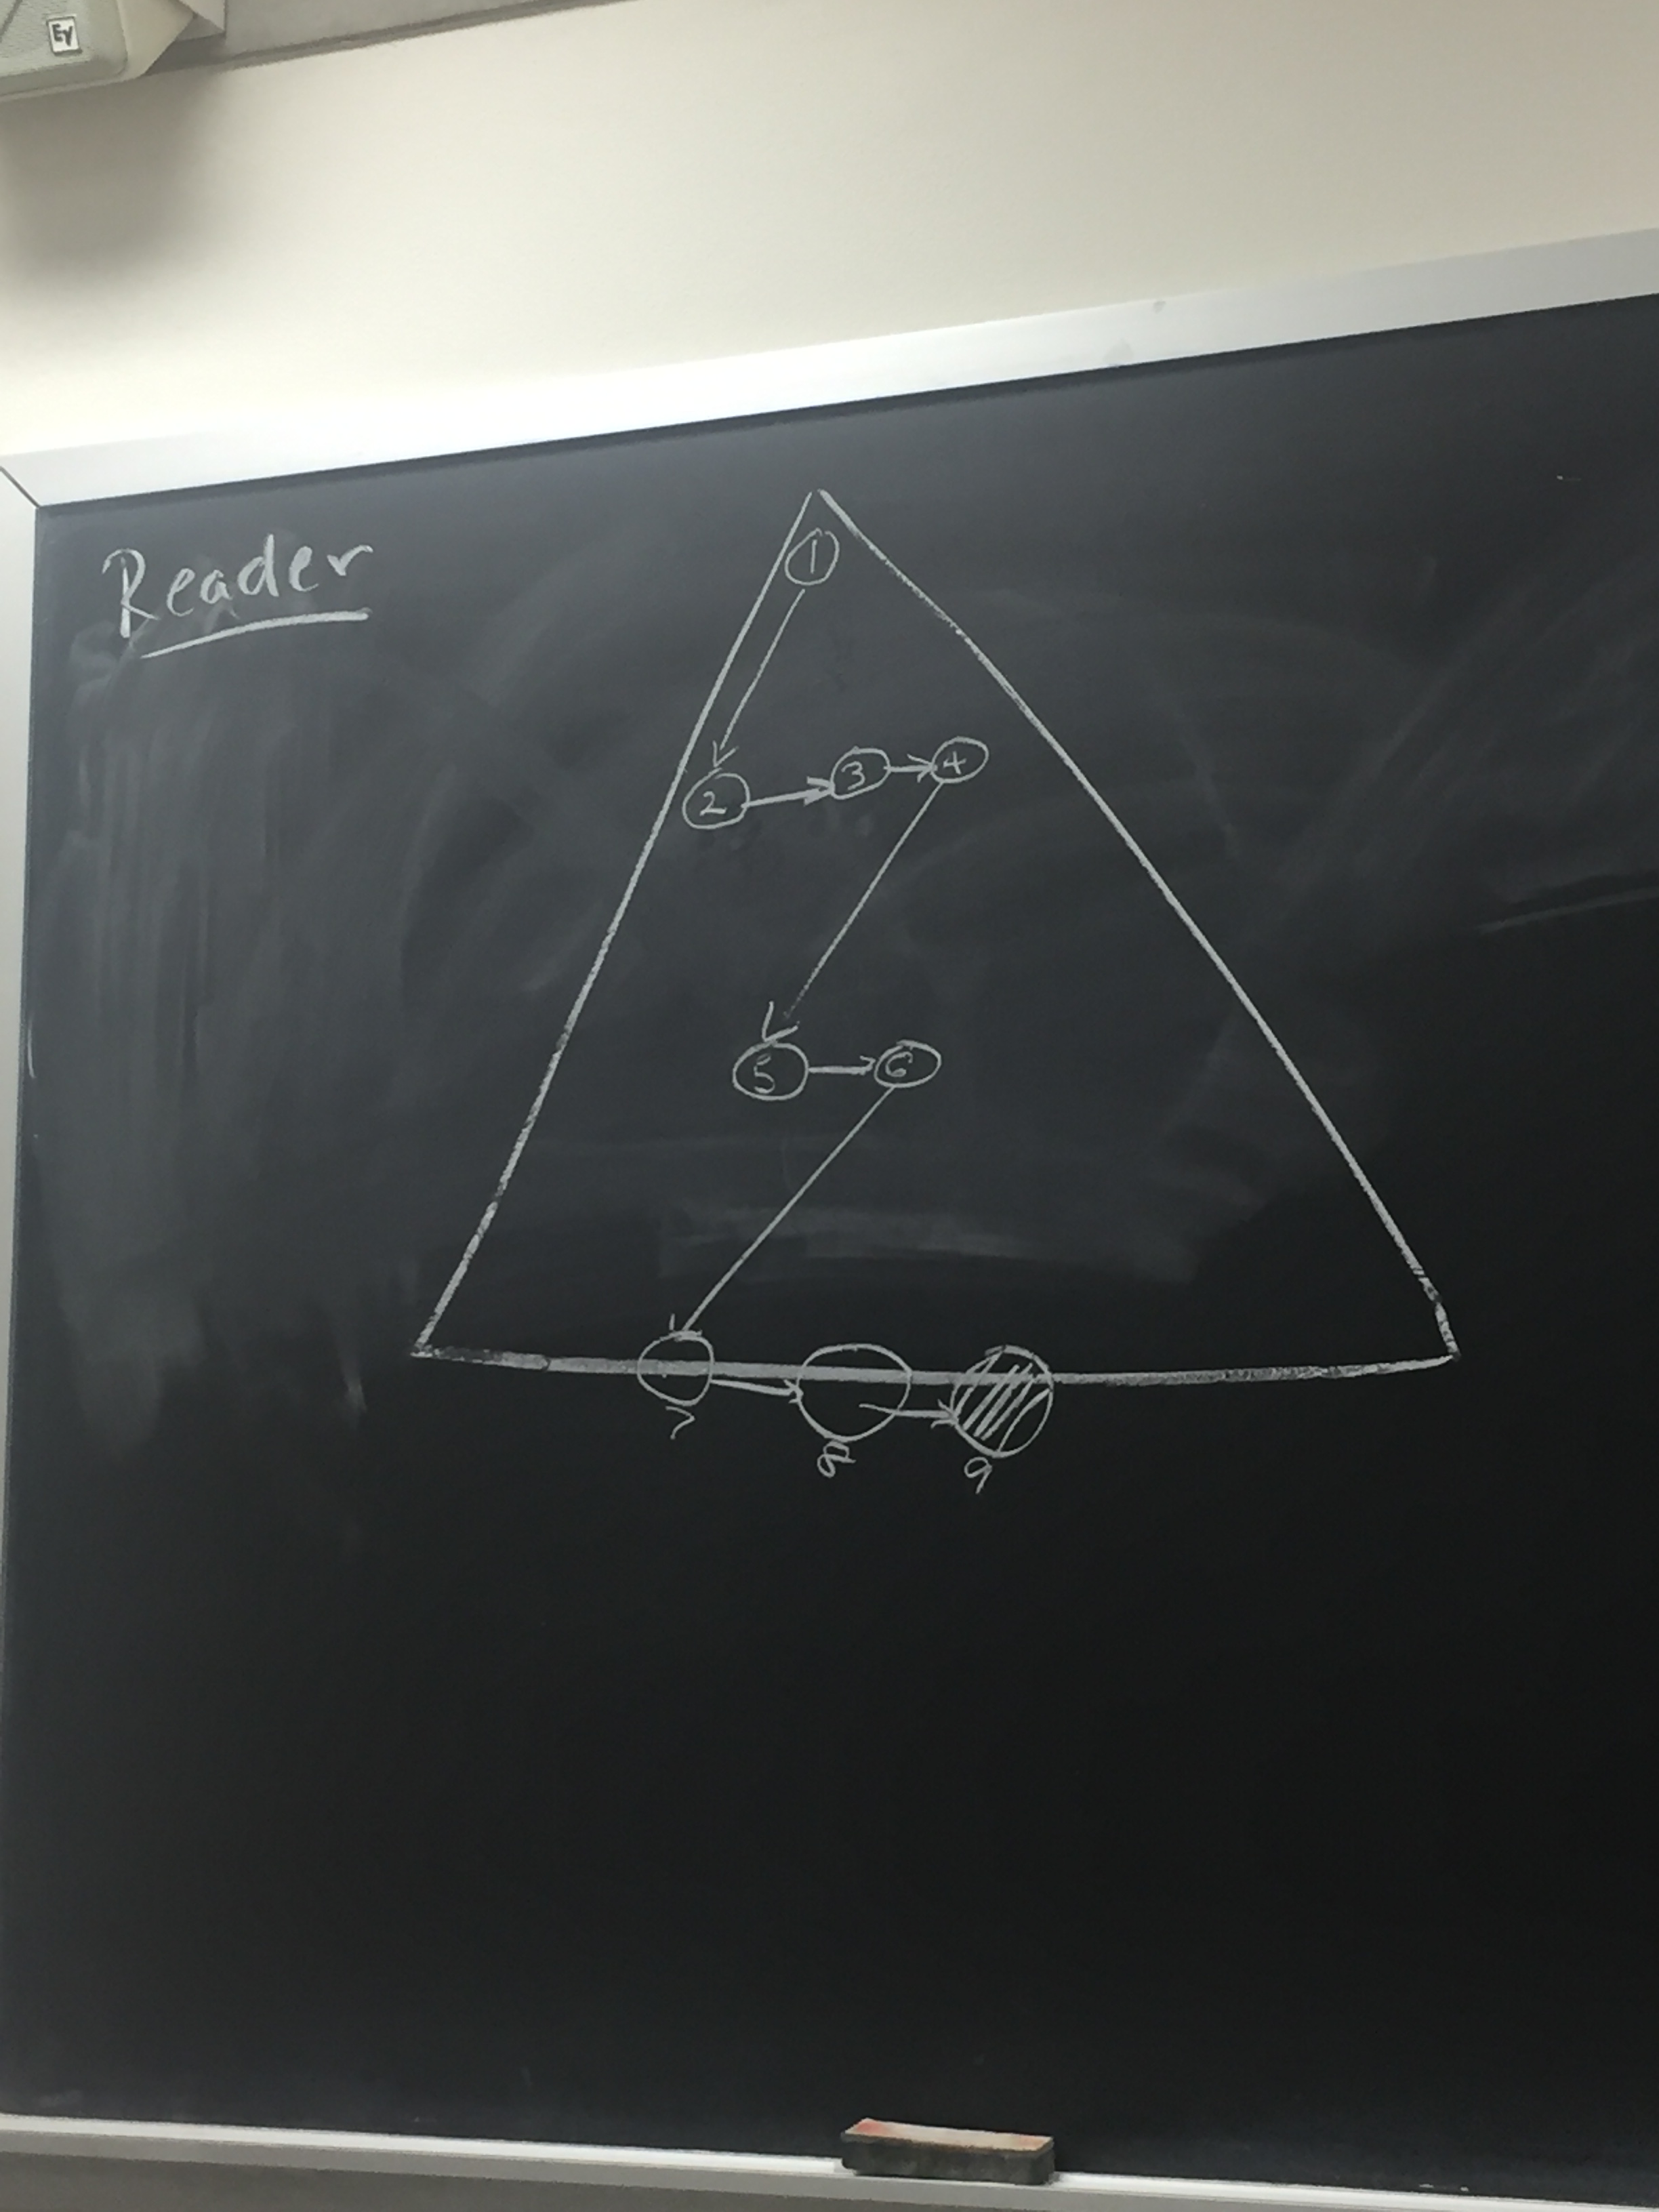 EV
Reader
1
2 3 4
5 6
7 8 9